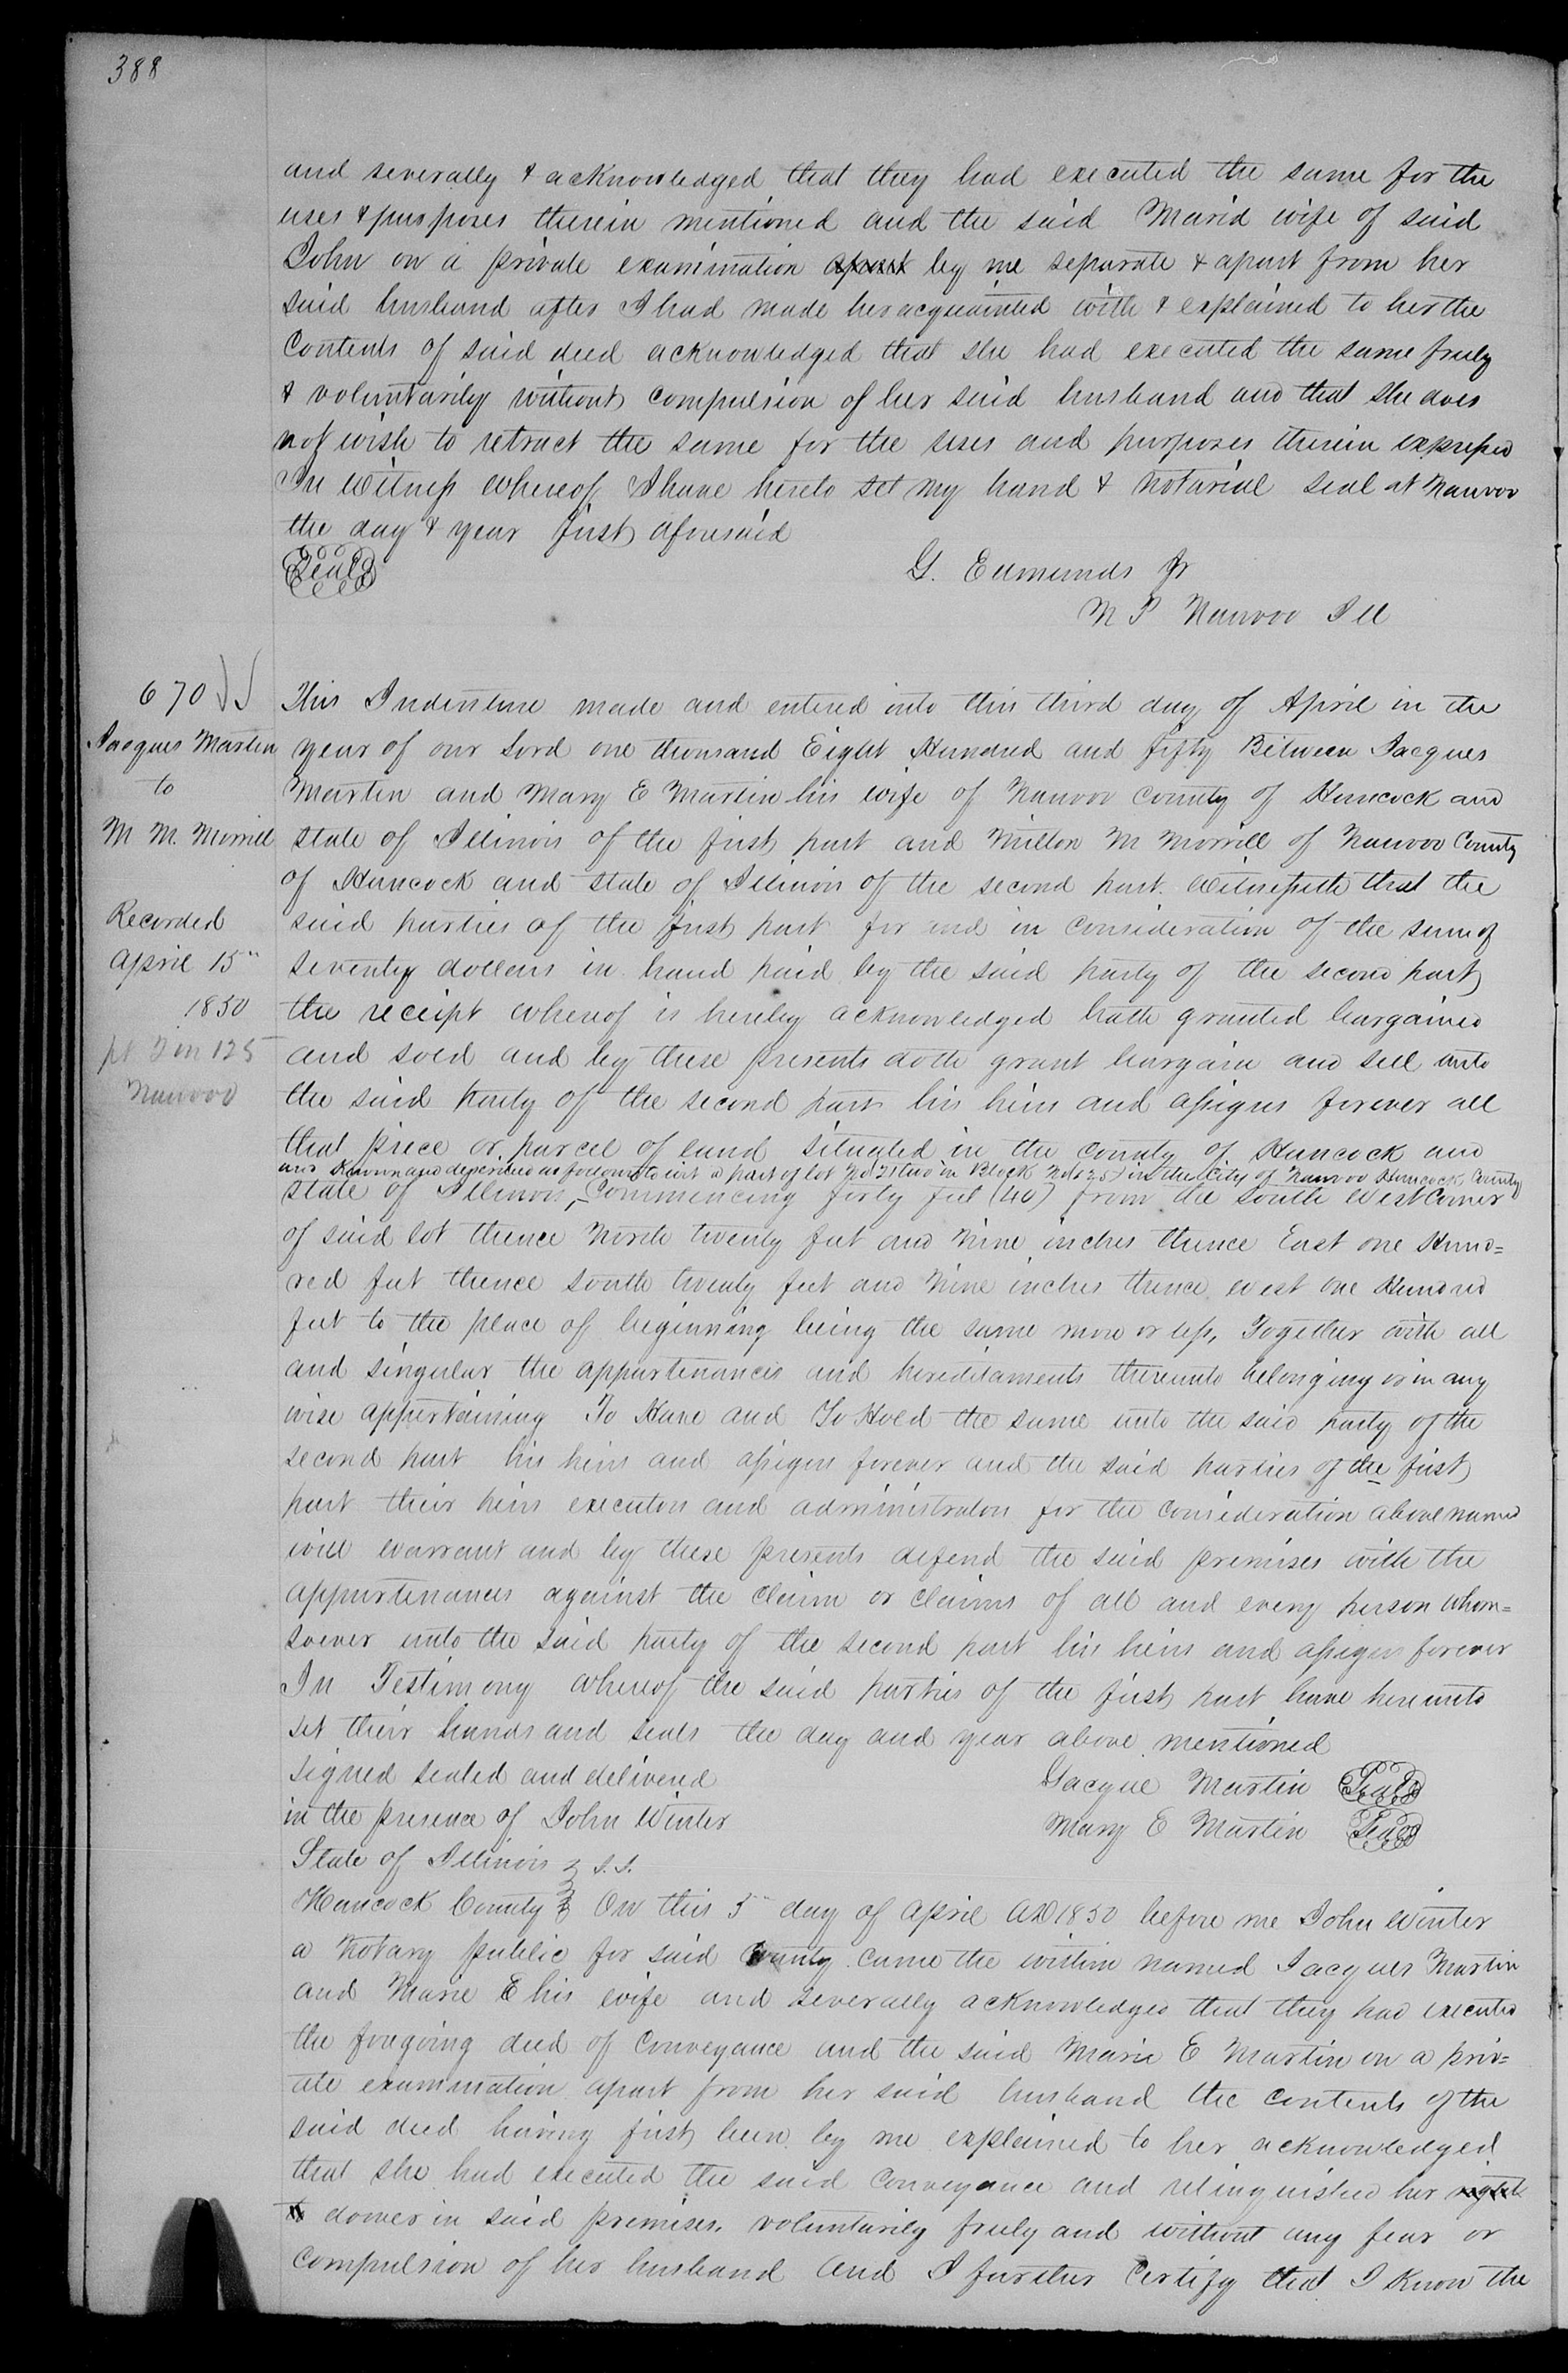 388
and severally & acknowledged that they had executed the same for the
uses & purposes therein mentioned and the said Maria wife of said
John on a private examination apart by me separate & apart from her
said husband after I had made her acquainted with & explained to her the
Contents of said deed acknowledged that she had executed the same freely
& voluntarily without compulsion of her said husband and that she does
not wish to retract the same for the uses and purposes therein expressed
In Witness whereof I have hereto set my hand & Notarial seal at Nauvoo
the day & year first aforesaid
Seal
G. Edmunds Jr
N P Nauvoo Ill
670
Jacques Martin
to
M M. Morrill
Recorded
April 15"
1850
pt 2 in 125
Nauvoo
This Indenture made and entered into this third day of April in the
year of our Lord one thousand Eight Hundred and fifty Between Jacques
Martin and Mary E Martin his wife of Nauvoo County of Hancock and
state of Illinois of the first part and Milton M Morrill of Nauvoo County
of Hancock and state of Illinois of the second part. Witnesseth that the
said parties of the first part for and in Consideration of the sum of
seventy dollars in hand paid by the said party of the second part
the receipt whereof is hereby acknowledged hath granted bargained
and sold and by these presents doth grant bargain and sell unto
the said Party of the second part his heirs and assigns forever all
that piece or parcel of land situated in the County of Hancock and
and Known and described as follows to wit a part of lot No 2) two in Block No 125) in the City of Nauvoo Hancock County
state of Illinois, Commencing forty feet (40) from the South West Corner
of said lot thence North twenty feet and Nine inches thence East one Hund=
red feet thence South twenty feet and Nine inches thence west one Hundred
feet to the place of beginning being the same more or less, Together with all
and singular the appurtenances and hereditaments thereunto belonging or in any
wise appertaining To Have and To Hold the same unto the said party of the
second part his heirs and assigns forever and the said parties of the first
part their heirs executors and administrators for the Consideration above named
will warrant and by these presents defend the said premises with the
appurtenances against the Claim or Claims of all and every person whom=
soever unto the said party of the second part his heirs and assigns forever
In Testimony whereof the said parties of the first part have hereunto
set their hands and seals the day and year above mentioned
signed sealed and delivered
in the presence of John Winter
Jacque Martin Seal
Mary E Martin Seal
State of Illinois } S.S.
Hancock County } On this 5" day of April AD 1850 before me John Winter
a Notary public for said County came the within named Jacques Martin
and Marie E his wife and severally acknowledged that they had executed
the foregoing deed of Conveyance and the said Marie E Martin on a priv=
ate examination apart from her said husband the contents of the
said deed having first been by me explained to her acknowledged
that she had executed the said Conveyance and relinquished her right
to dower in said premises. voluntarily freely and without any fear or
Compulsion of her husband And I further Certify that I Know the